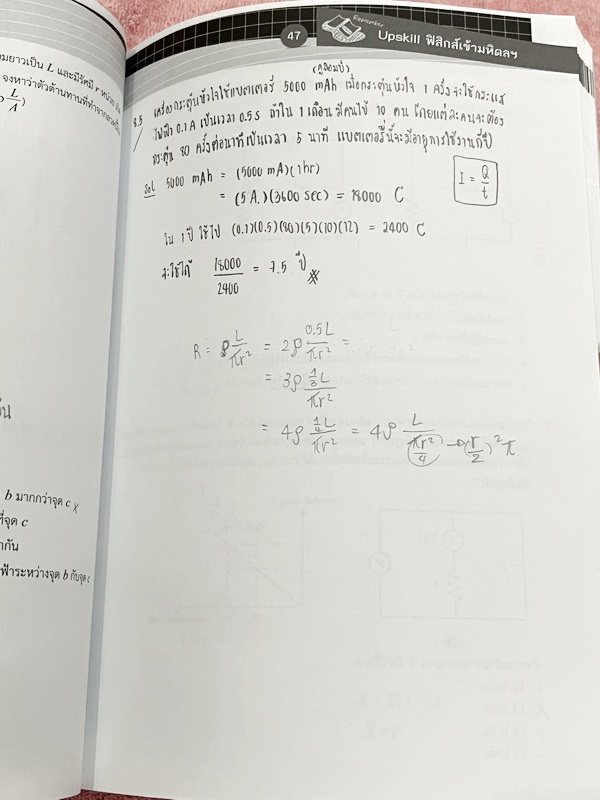 47 Remember Upskill ฟิสิกส์เข้ามหิดลฯ
ยาวเป็น L และมีรัศมี r หน่วย
จงหาว่าตัวต้านทานที่ทำจาก
L
A)
b มากกว่าจุด c x
ที่จุด c
ากัน
ฟ้าระหว่างจุด b กับจุด c
8.5 เครื่องกระตุ้นหัวใจใช้แบตเตอรี่ 5000 mAh เมื่อกระตุ้นหัวใจ 1 ครั้งจะใช้กระแส
ไฟฟ้า 0.1 A เป็นเวลา 0.5 s ถ้าใน 1 เดือน มีคนไข้ 10 คน โดยแต่ละคนจะต้อง
กระตุ้น 80 ครั้งต่อนาทีเป็นเวลา 5 นาที แบตเตอรี่นี้จะมีอายุการใช้งานกี่ปี
Sol 5000 mAh = (5000 mA)(1 hr)
= (5 A.)(3600 sec) = 18000 C
I = Q/t
ใน 1 ปี ใช้ไป (0.1)(0.5)(80)(5)(10)(12) = 2400 C
จะใช้ได้ 18000/2400 = 7.5 ปี
R = ρ L/πr² = 2ρ 0.5L/πr² =
= 3ρ ⅓L/πr²
= 4ρ ¼L/πr² = 4ρ L/(πr²/4) → (r/2)² π